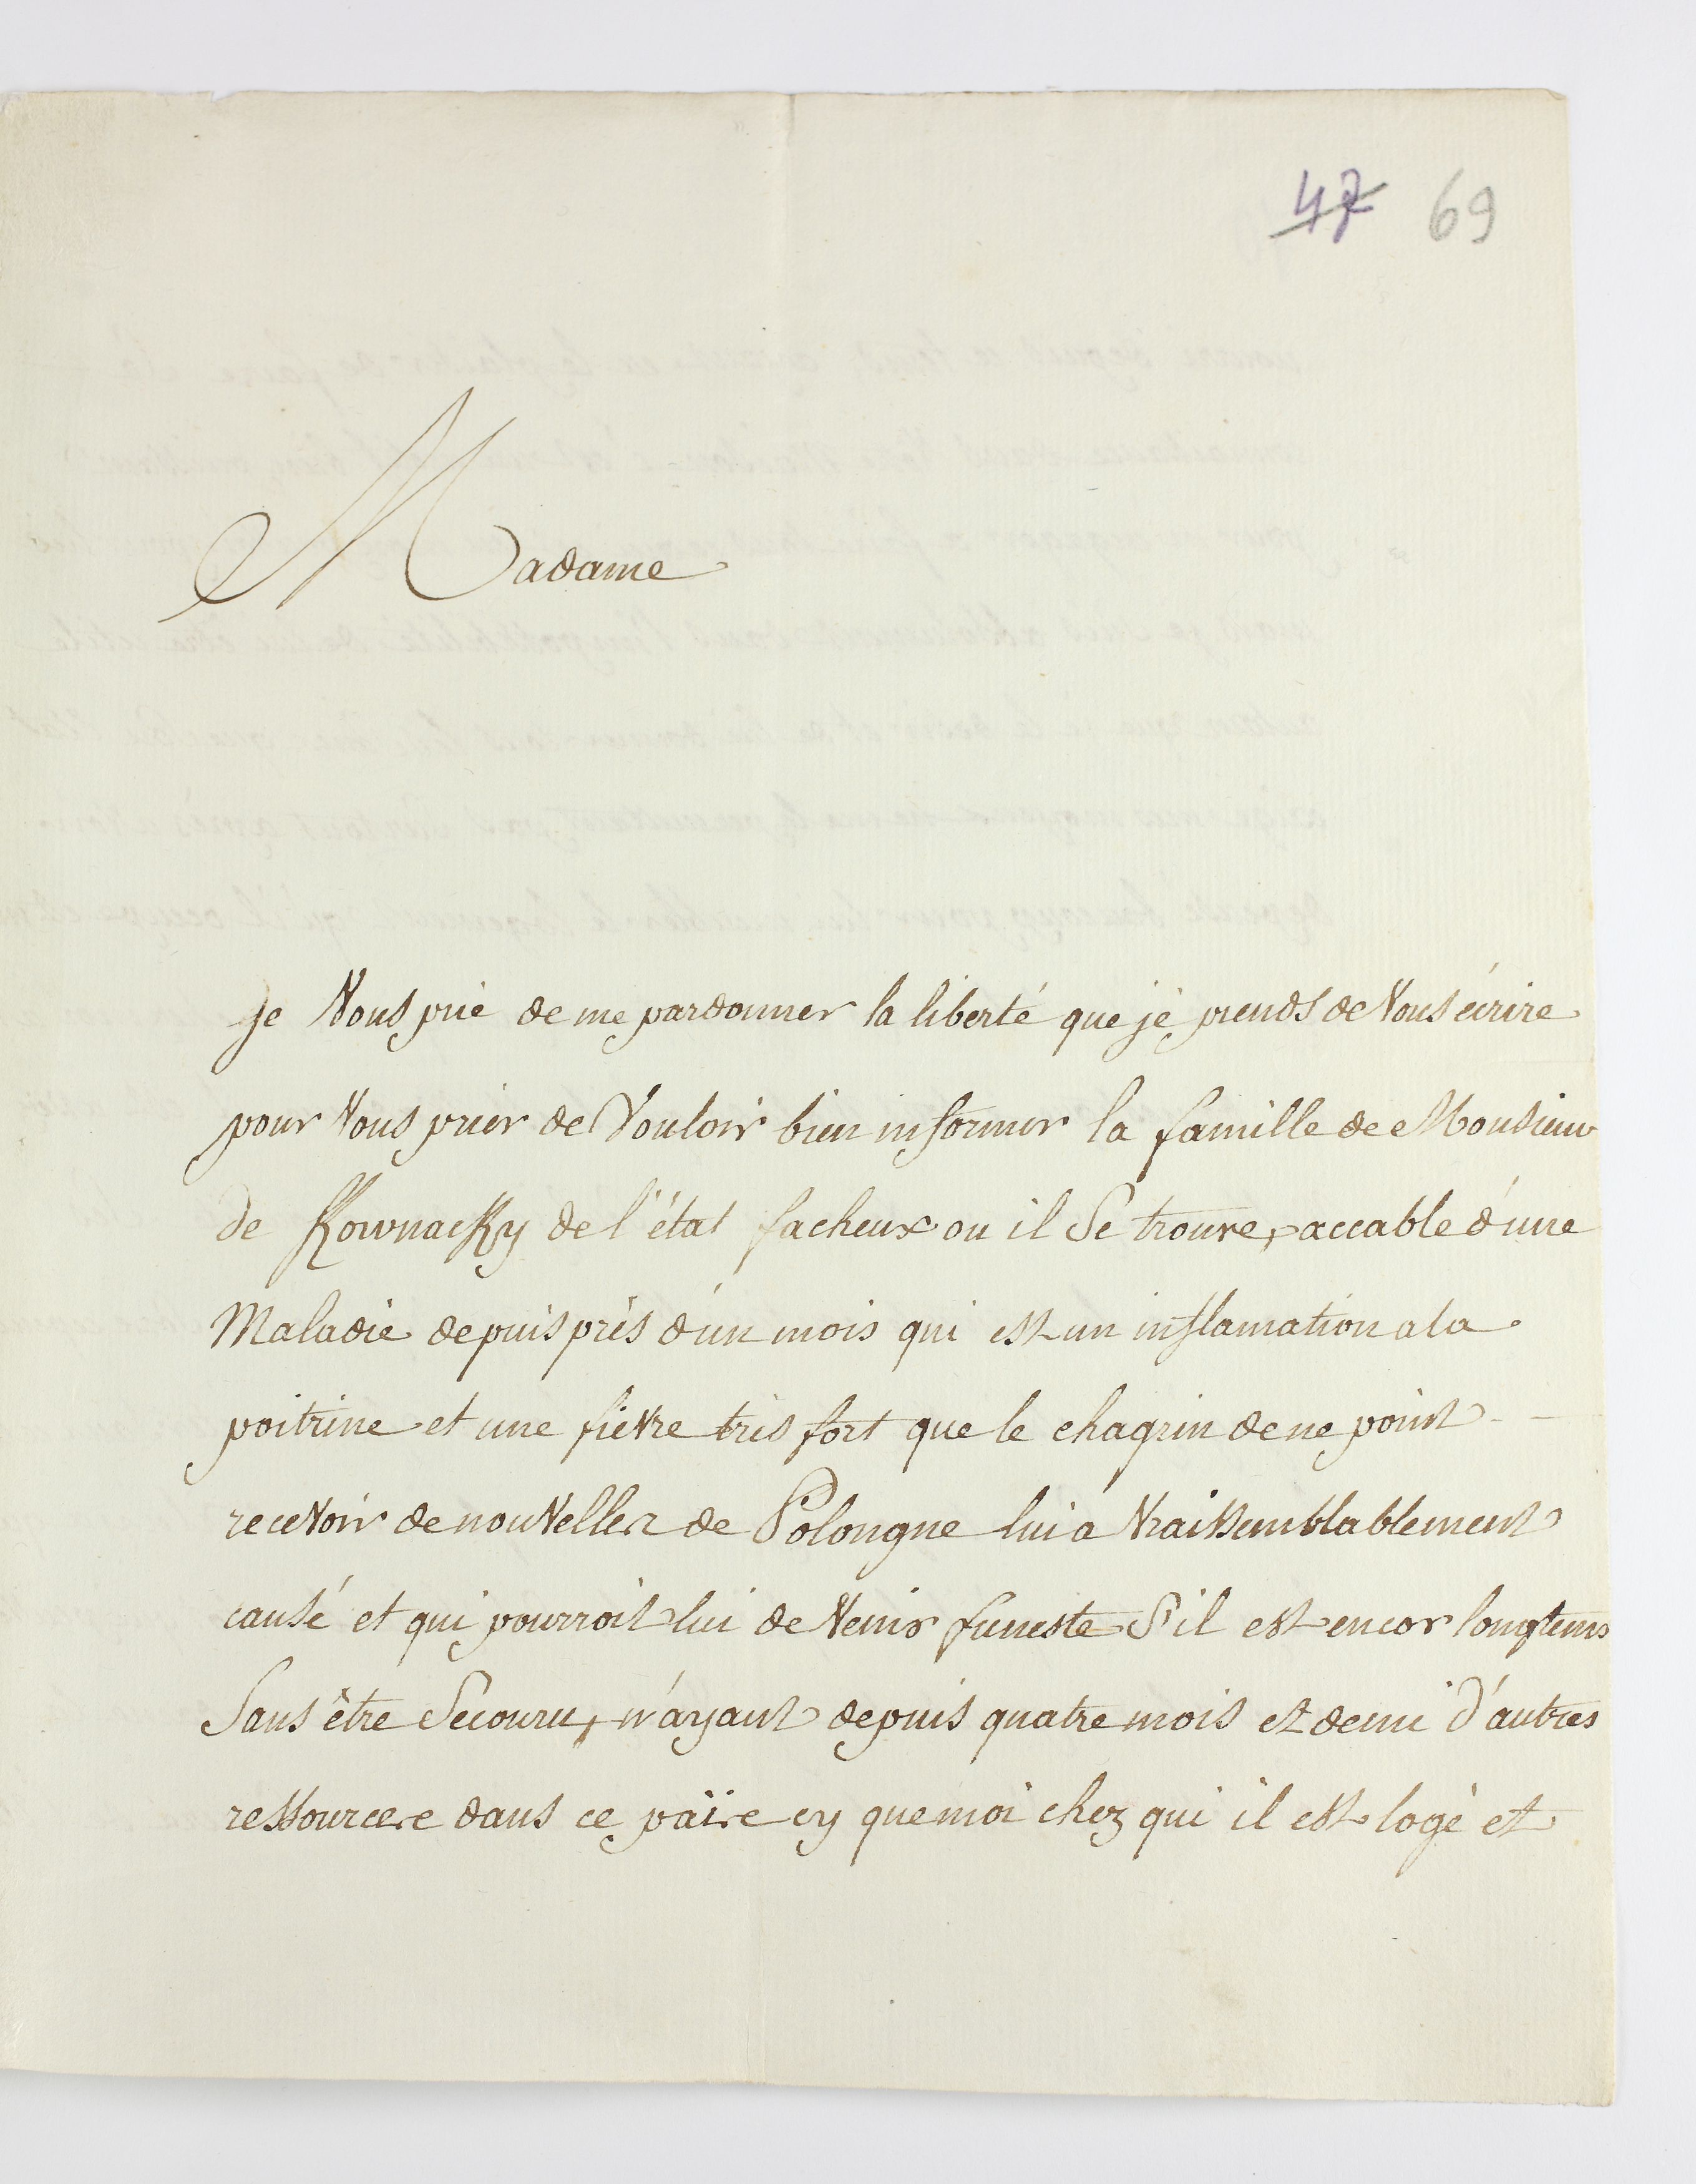 47 69
Madame
Je Vous prie de me pardonner la liberté que je prends de Vous écrire
pour Vous prier de Vouloir bien informer la famille de Monsieur
de Kownacky de l'état facheux ou il Se trouve, accable d'une
Maladie depuis près d'un mois qui est un inflamation a la
poitrine et une fievre très fort que le chagrin de ne point
recevoir de nouvelles de Polongne lui a Vraissemblablement
causé et qui pourroit lui de Venir funeste S'il est encor longtems
Sans être Secouru, n'ayant depuis quatre mois et demi d'autres
ressources dans ce païs cy que moi chez qui il est logé et